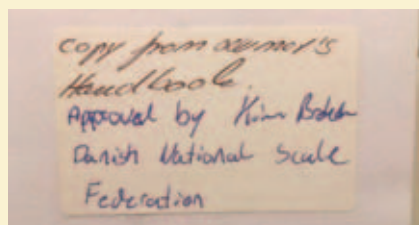 Copy from owner's
Handbook.
Approved by Kim
Danish National Scale
Federation